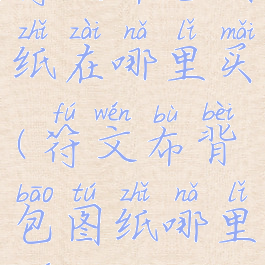 zhǐ zài nǎ lǐ mǎi
纸在哪里买
fú wén bù bèi
(符文布背
bāo tú zhǐ nǎ lǐ
包图纸哪里